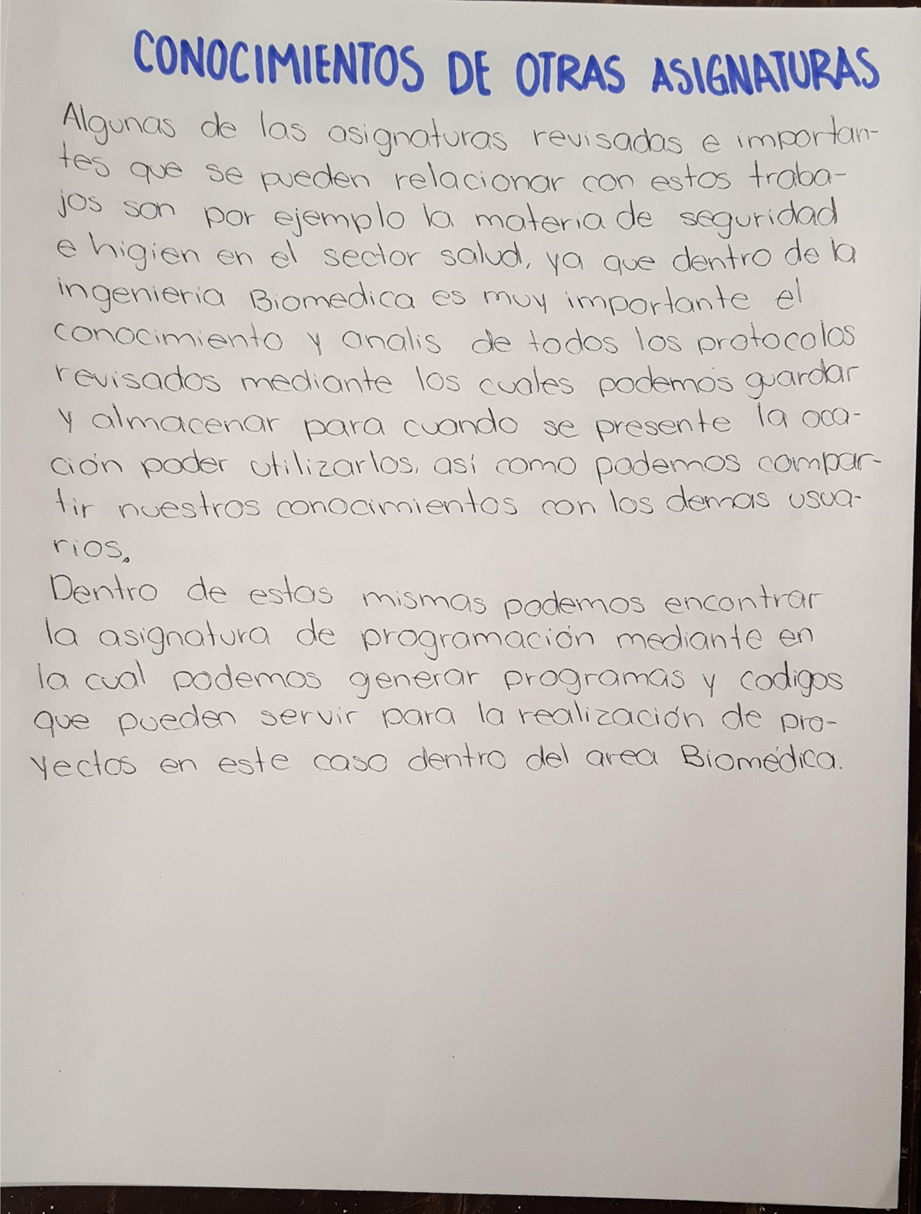 CONOCIMIENTOS DE OTRAS ASIGNATURAS
Algunas de las asignaturas revisadas e importan-
tes que se pueden relacionar con estos traba-
jos son por ejemplo la materia de seguridad
e higien en el sector salud, ya que dentro de la
ingenieria Biomedica es muy importante el
conocimiento y analis de todos los protocolos
revisados mediante los cuales podemos guardar
y almacenar para cuando se presente la oca-
ción poder utilizarlos, así como podemos compar-
tir nuestros conocimientos con los demas usua-
rios.
Dentro de estas mismas podemos encontrar
la asignatura de programación mediante en
la cual podemos generar programas y codigos
que pueden servir para la realización de pro-
yectos en este caso dentro del area Biomédica.